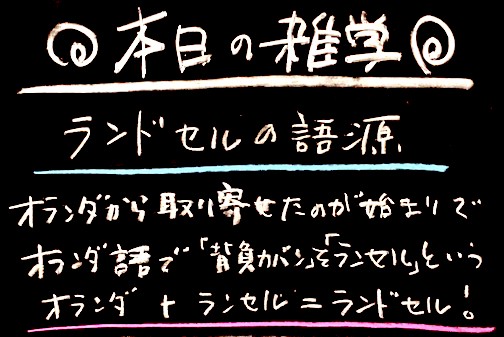 本日の雑学
ランドセルの語源
オランダから取り寄せたのが始まりで
オランダ語で「背負カバン」を「ランセル」という
オランダ + ランセル = ランドセル!